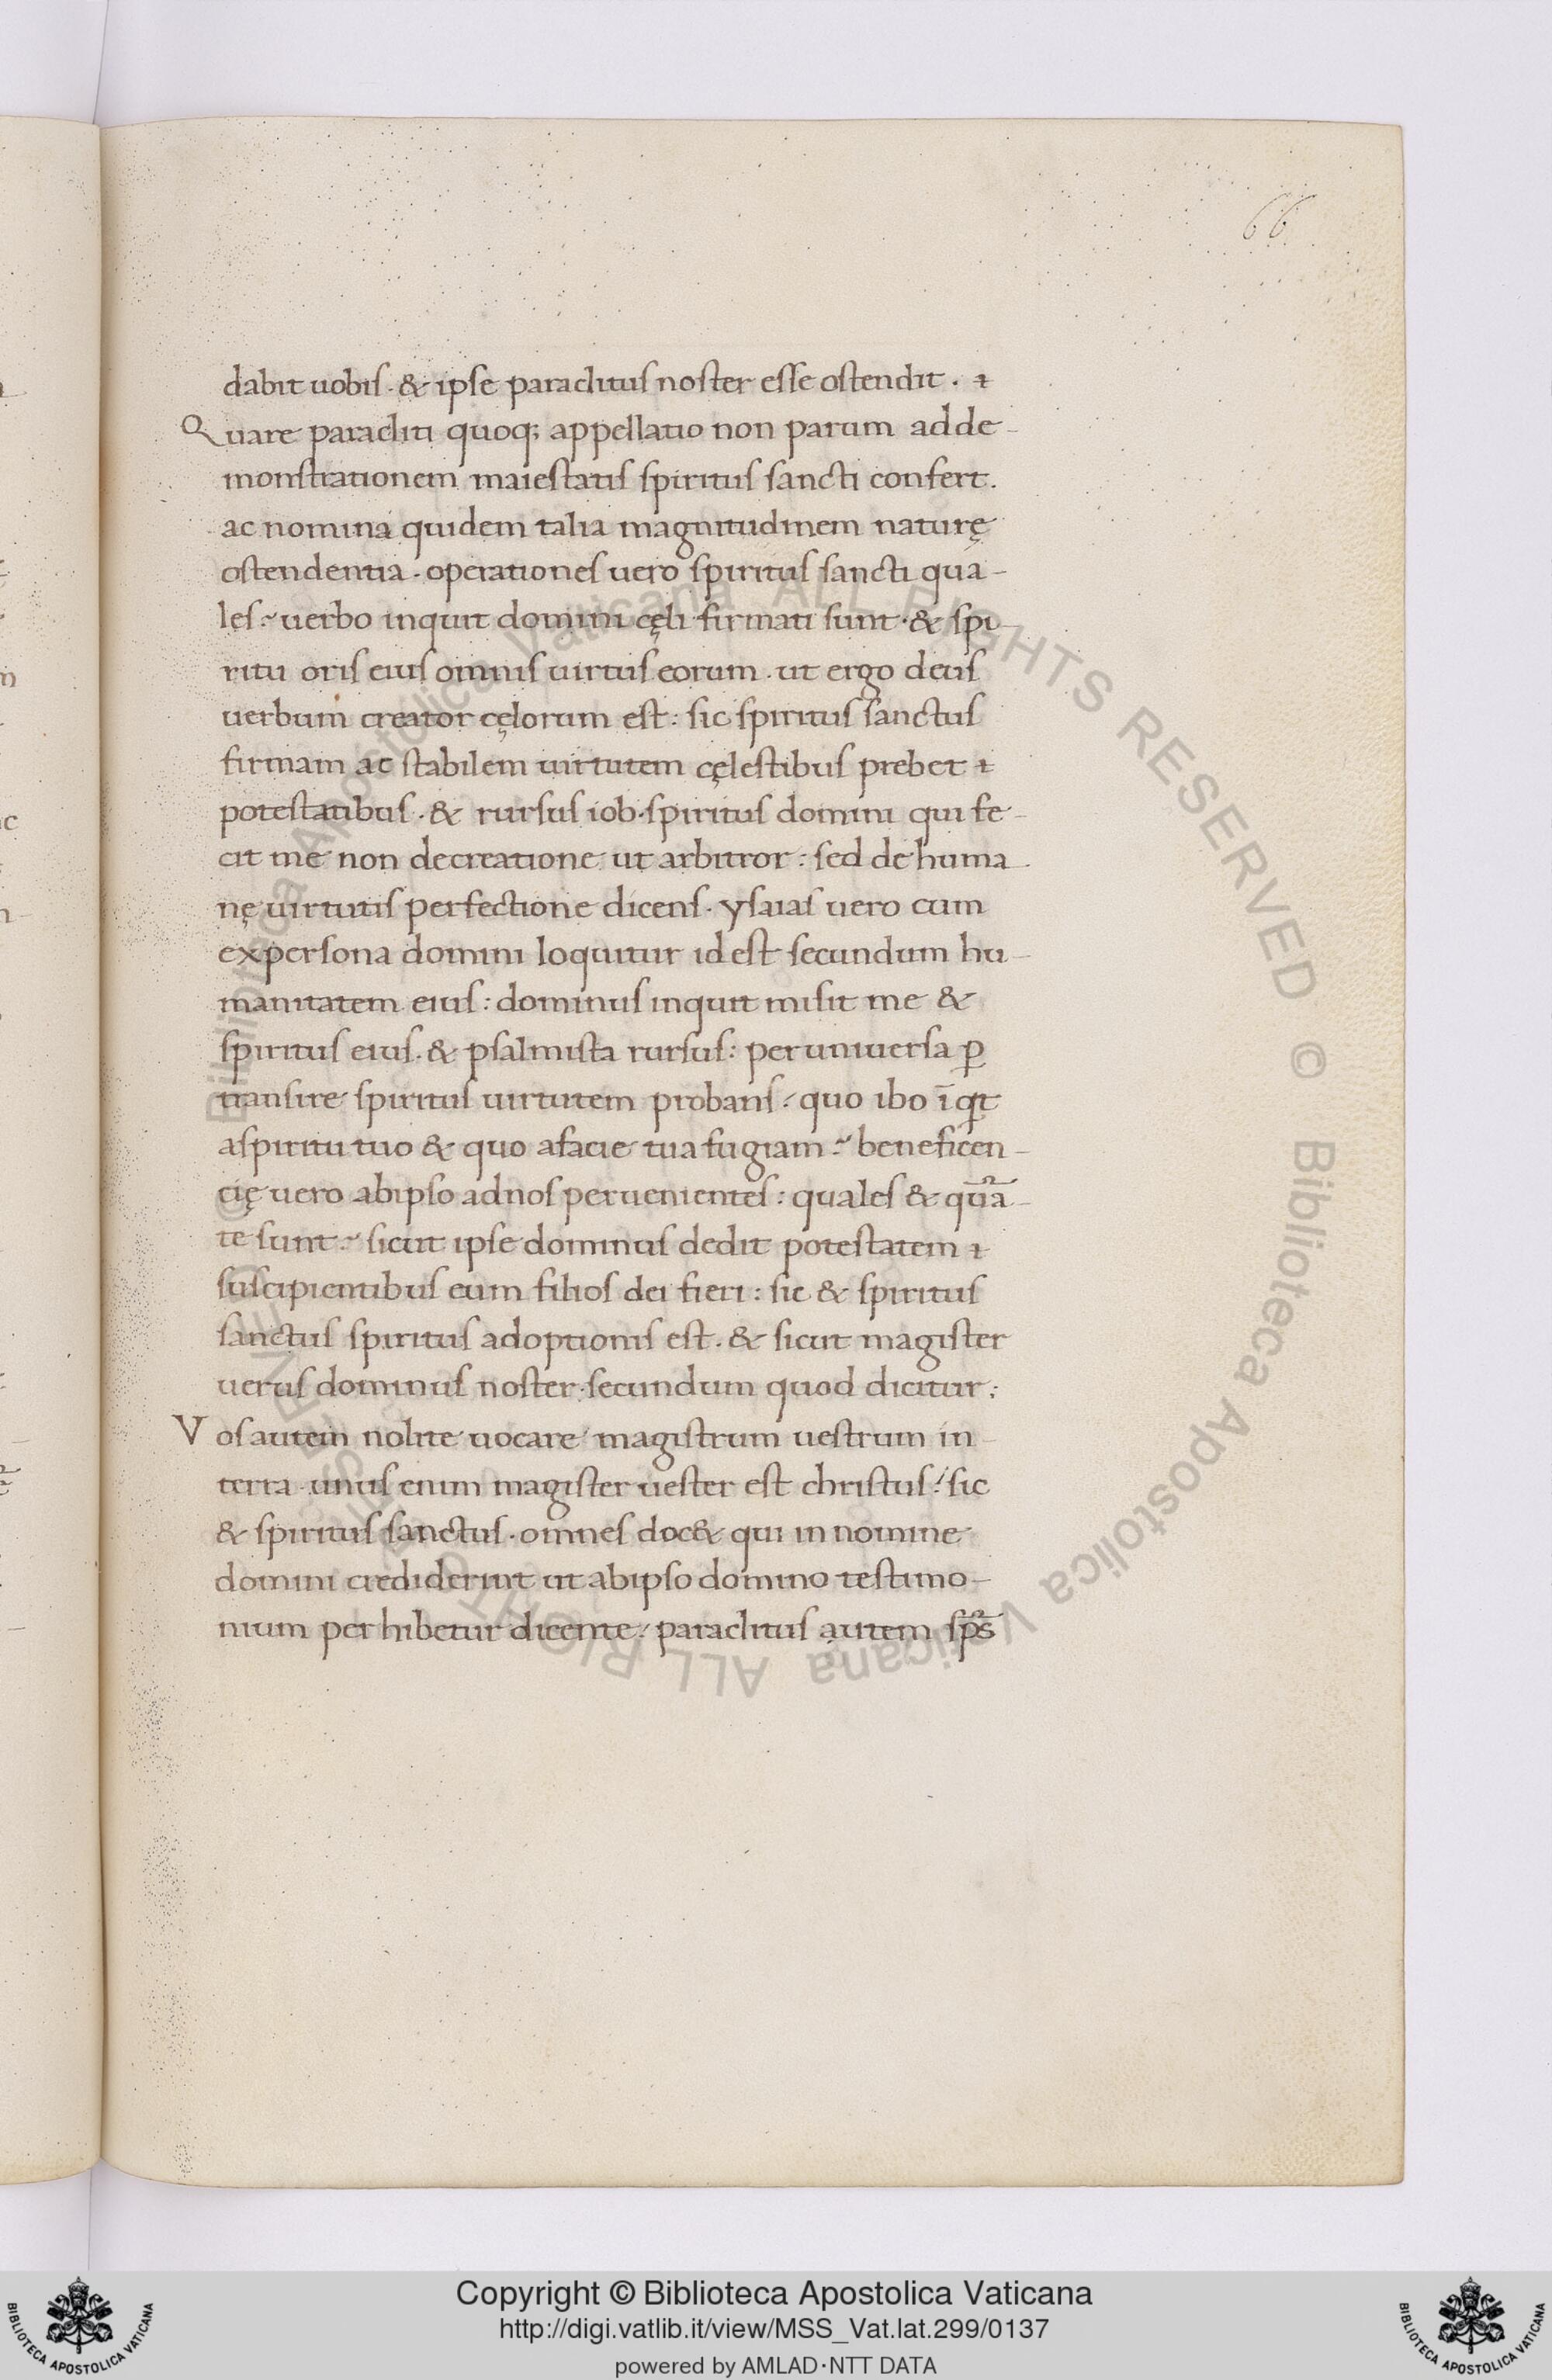 66
dabit uobiſ. & ipſe paraclituſ noſter eſſe oſtendit.
Quare paracliti quoq; appellatio non parum ad de-
monſtrationem maieſtatiſ ſpirituſ ſancti confert.
ac nomina quidem talia magnitudinem naturę
oſtendentia. operationeſ uero ſpirituſ ſancti qua-
leſ? uerbo inquit domini cęli firmati ſunt. & ſpi-
ritu oriſ eiuſ omniſ uirtuſ eorum. ut ergo deuſ
uerbum creator cęlorum eſt: ſic ſpirituſ ſanctuſ
firmam ac ſtabilem uirtutem cęleſtibuſ prebet
poteſtatibuſ. & rurſuſ iob. ſpirituſ domini qui fe-
cit me non de creatione ut arbitror: ſed de huma-
nę uirtutiſ perfectione dicenſ. yſaiaſ uero cum
ex perſona domini loquitur id eſt ſecundum hu-
manitatem eiuſ: dominuſ inquit miſit me &
ſpirituſ eiuſ. & pſalmiſta rurſuſ: per uniuerſa ꝑ
tranſire ſpirituſ uirtutem probanſ: quo ibo īqt
a ſpiritu tuo & quo a facie tua fugiam? beneficen-
cię uero ab ipſo ad noſ peruenienteſ: qualeſ & quā-
te ſunt? ſicut ipſe dominuſ dedit poteſtatem
ſuſcipientibuſ eum filioſ dei fieri: ſic & ſpirituſ
ſanctuſ ſpirituſ adoptioniſ eſt. & ſicut magiſter
ueruſ dominuſ noſter. ſecundum quod dicitur:
Voſ autem nolite uocare magiſtrum ueſtrum in
terra. unuſ enim magiſter ueſter eſt chriſtuſ: ſic
& ſpirituſ ſanctuſ. omneſ doc& qui in nomine
domini crediderint ut ab ipſo domino teſtimo-
nium perhibetur dicente: paraclituſ autem ſp̅s
Copyright © Biblioteca Apostolica Vaticana
http://digi.vatlib.it/view/MSS_Vat.lat.299/0137
powered by AMLAD·NTT DATA